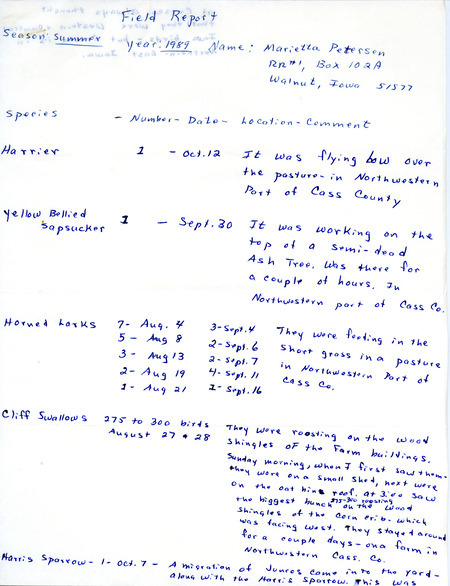 Field Report
Season: Summer Year: 1989 Name: Marietta Petersen
RR#1, Box 102A
Walnut, Iowa 51577
Species - Number - Date - Location - Comment
Harrier 1 - Oct. 12 It was flying low over
the pasture - in Northwestern
Part of Cass County
Yellow Bellied 1 - Sept. 30 It was working on the
Sapsucker top of a semi-dead
Ash Tree. Was there for
a couple of hours. In
Northwestern part of Cass Co.
Horned Larks 7- Aug. 4 3-Sept. 4 They were feeding in the
5 - Aug 8 2-Sept. 6 short grass in a pasture
3 - Aug 13 2-Sept. 7 in Northwestern Part of
2 - Aug 19 4-Sept. 11 Cass Co.
1 - Aug 21 1-Sept. 16
Cliff Swallows 275 to 300 birds They were roosting on the wood
August 27 & 28 shingles of the Farm buildings.
Sunday morning, when I first saw them-
they were on a small shed, next were
on the oat bins roof. at 3:00 saw
the biggest bunch 275-300 roosting on the wood
shingles of the corn crib - which
was facing west. They stayed around
for a couple days - on a farm in
Northwestern Cass. Co.
Harris Sparrow - 1 - Oct. 7 - A migration of Juncos come into the yard -
along with the Harris Sparrow. This was